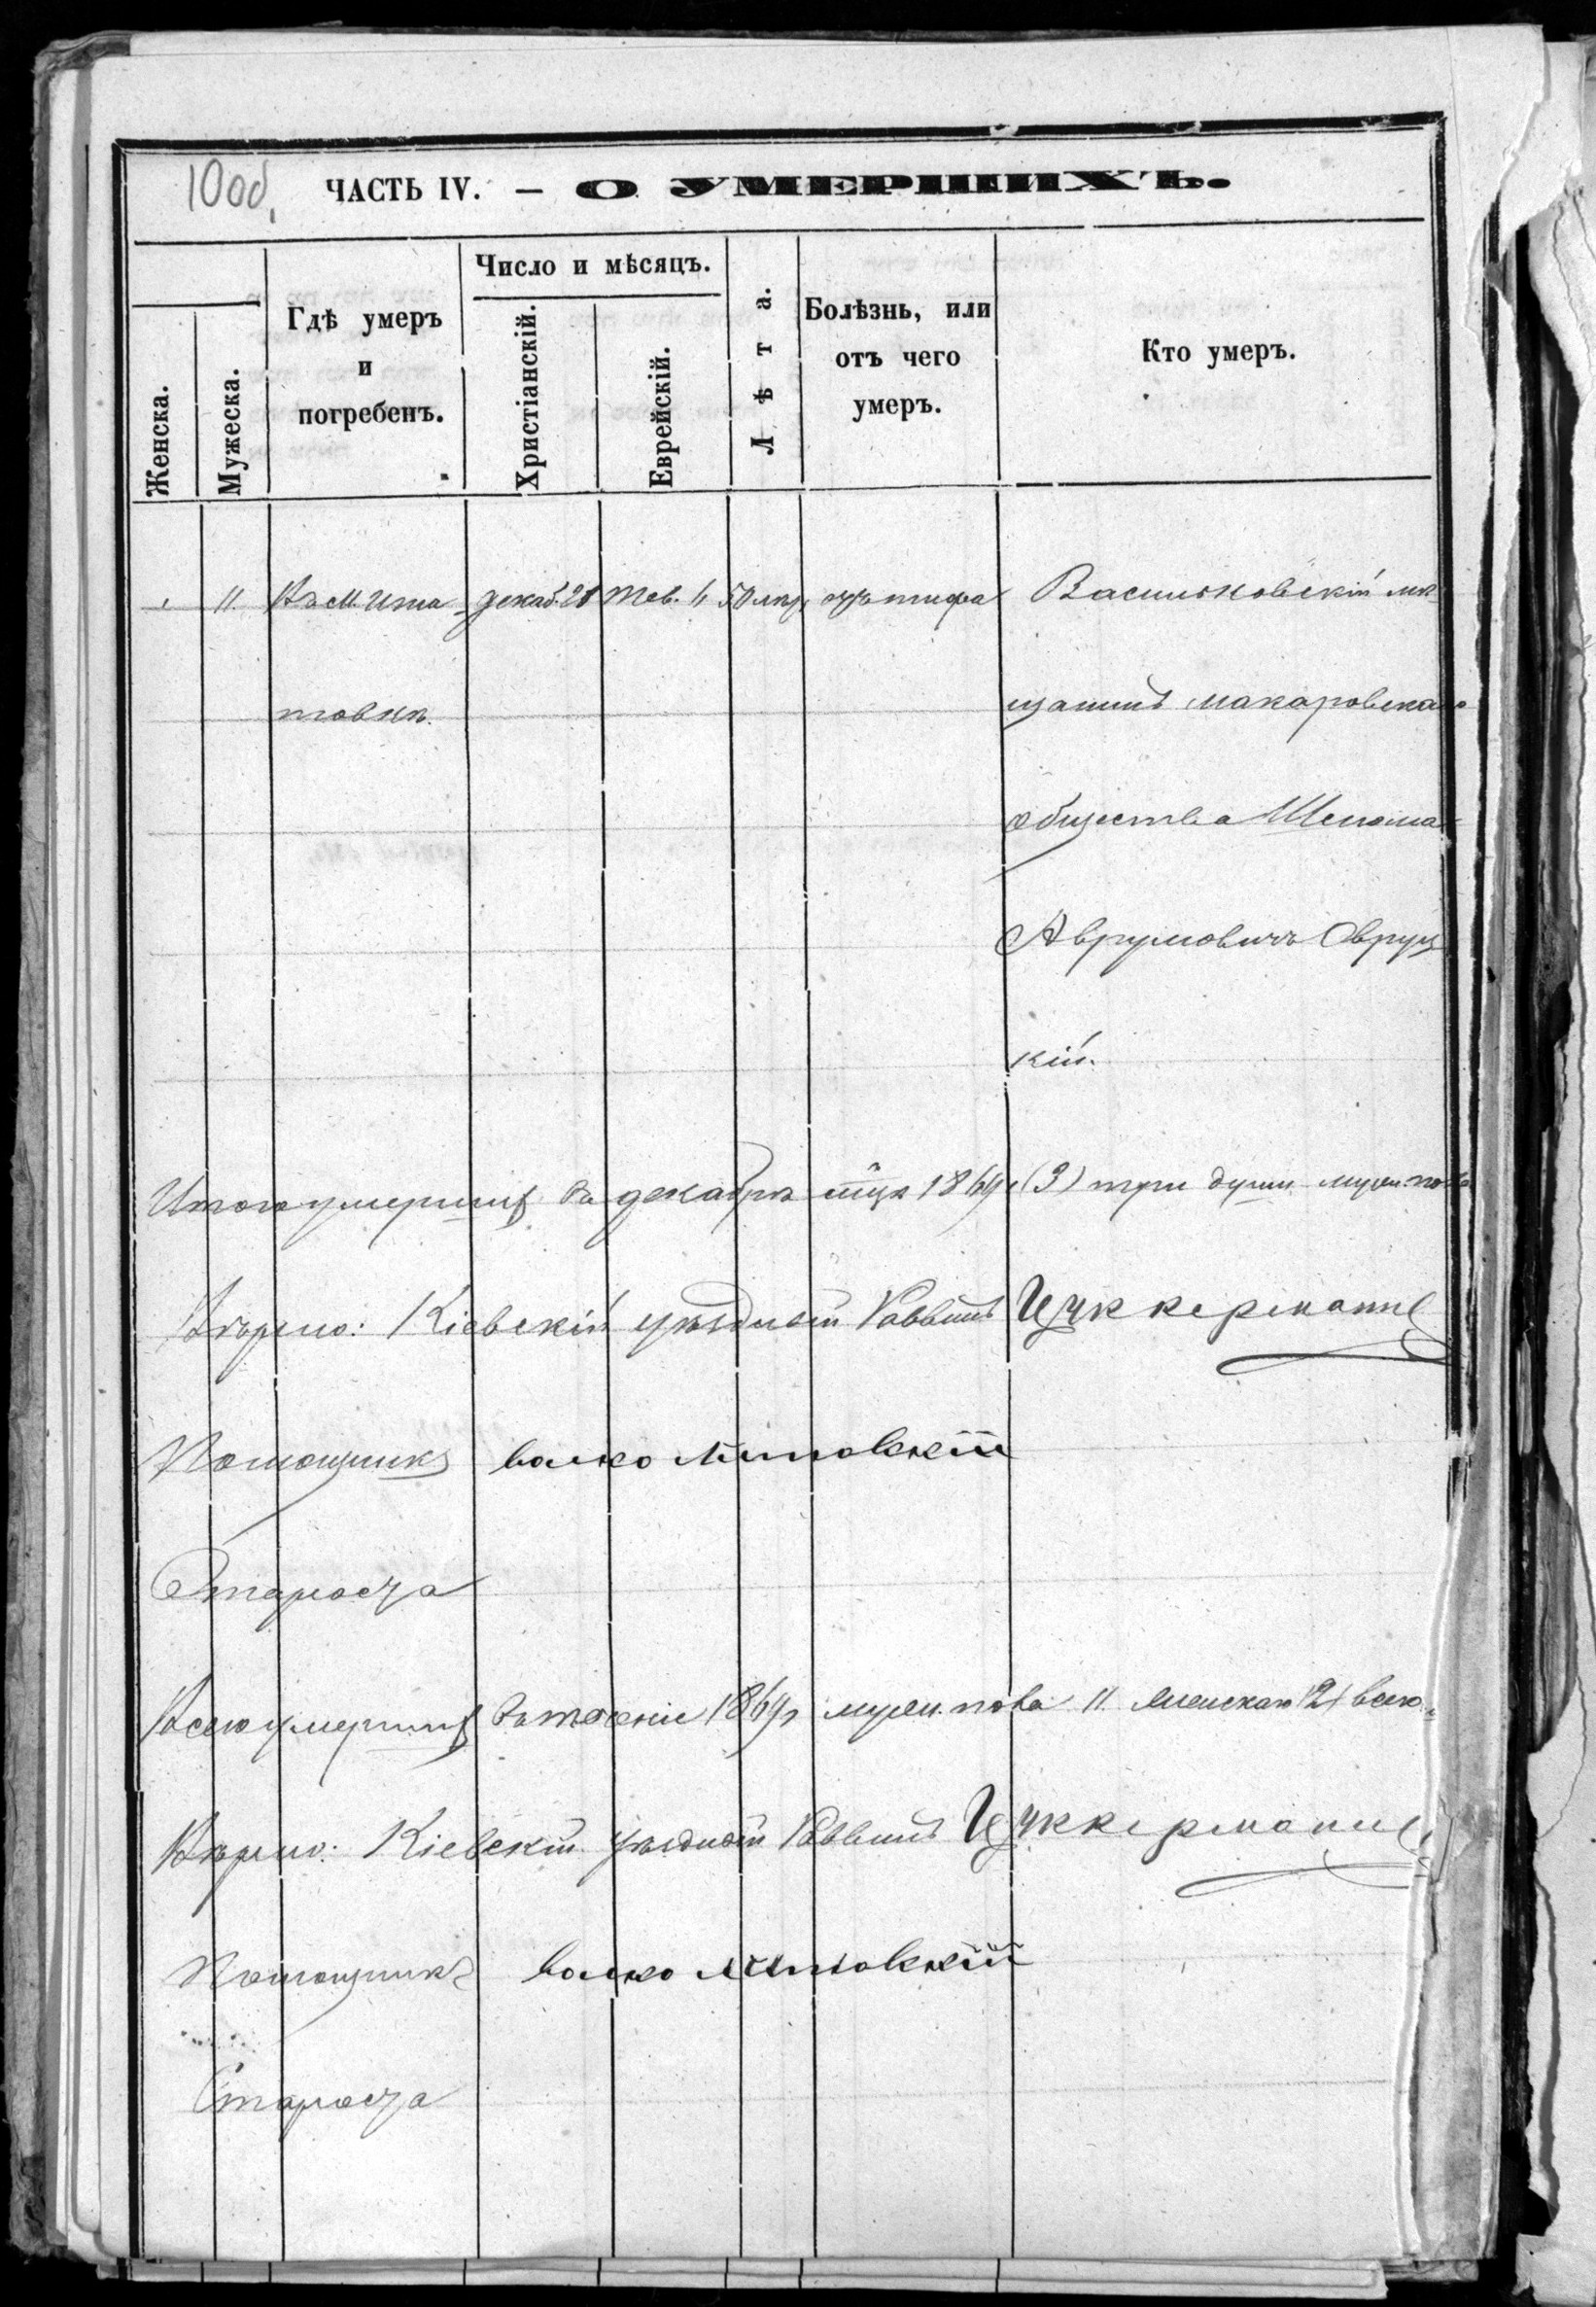 10об.
ЧАСТЬ IV. — О УМЕРШИХЪ.
Женска.
Мужеска.
Гдѣ умеръ
и
погребенъ.
Число и мѣсяцъ.
Христіанскій.
Еврейскій.
Лѣта.
Болѣзнь, или
отъ чего
умеръ.
Кто умеръ.
11. Въ м. Игна декаб. Тев. 50 лѣтъ отъ тифа Васильковскій мѣ-
товкѣ. щанинъ макаровскаго
общества Шелома
Аврумовичъ Овруц
кій.
Итого умершихъ въ декабрѣ м̃цѣ 1869 г (3) три души муж. пола
Вѣрно: Кіевскій уѣздный Раввинъ Цуккерманъ
Помощникъ волко
Староста
Всего умершихъ въ теченіе 1869 г муж. пола 11. женскаго всего
Вѣрно: Кіевскій уѣздный Раввинъ Цуккерманъ
Помощникъ волко
Староста